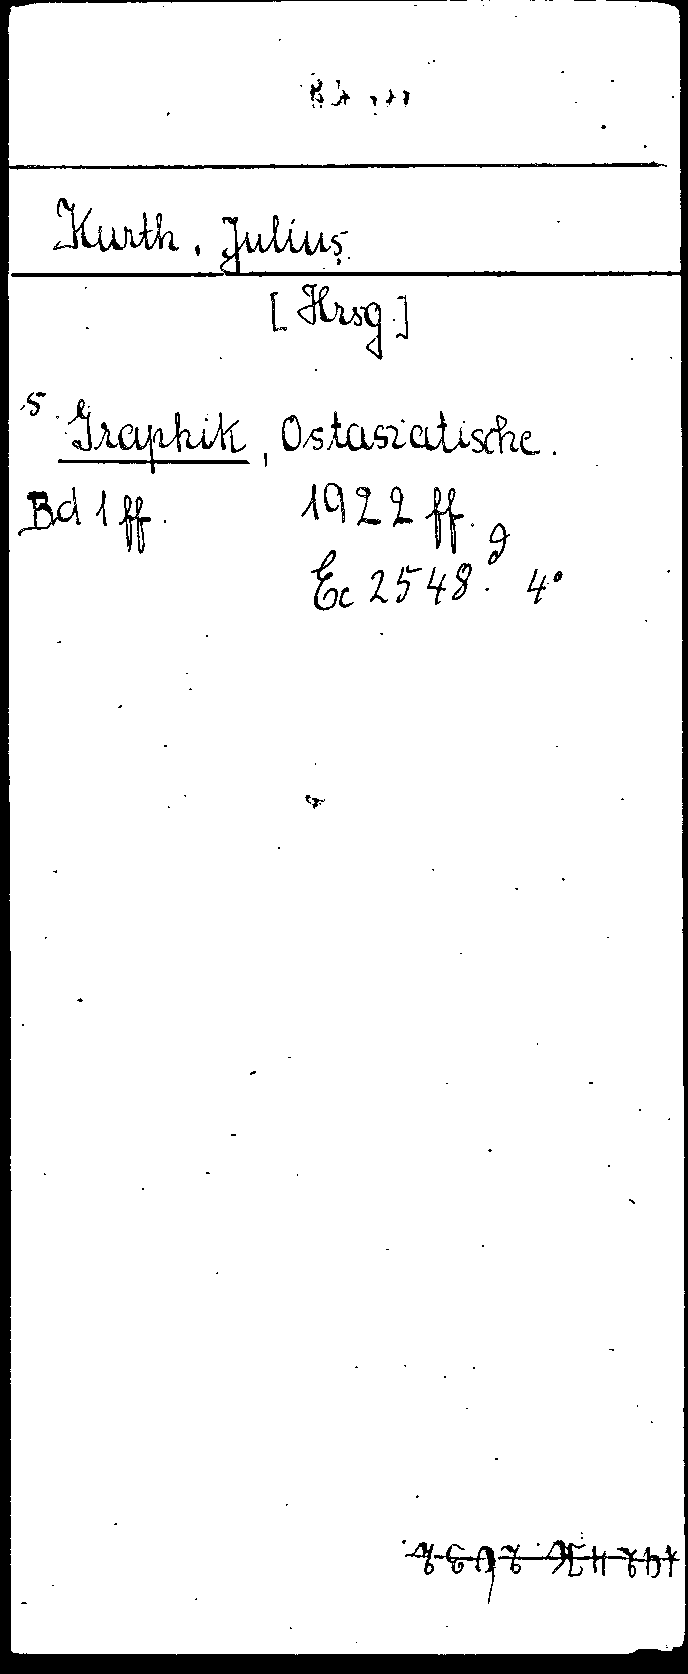 Kurth, Julius
[Hrsg.]
s. Graphik, Ostasiatische.
Bd 1 ff. 1922 ff.
Ec 2548 g. 4°